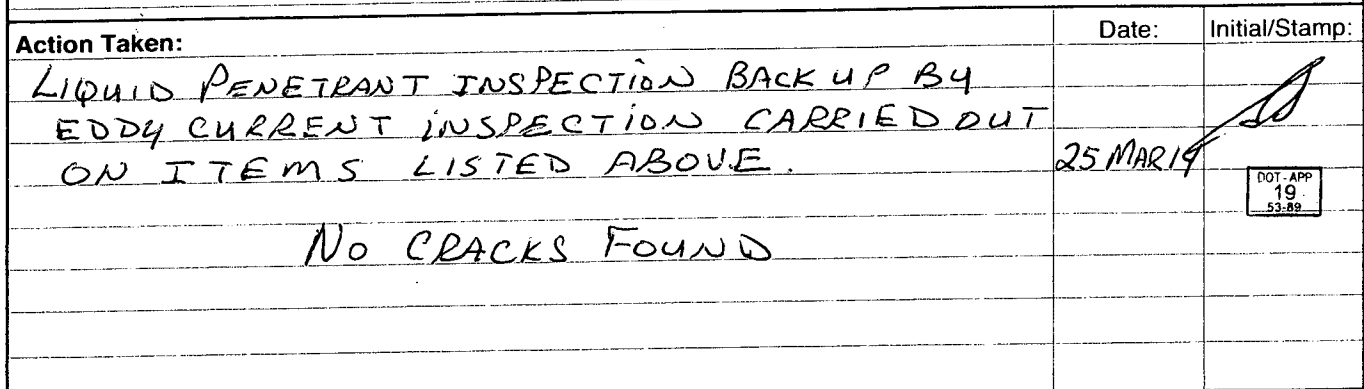 Action Taken:
Date:
Initial/Stamp:
LIQUID PENETRANT INSPECTION BACK UP BY
EDDY CURRENT INSPECTION CARRIED OUT
ON ITEMS LISTED ABOVE.
25 MAR 19
DOT-APP
19
53-89
NO CRACKS FOUND